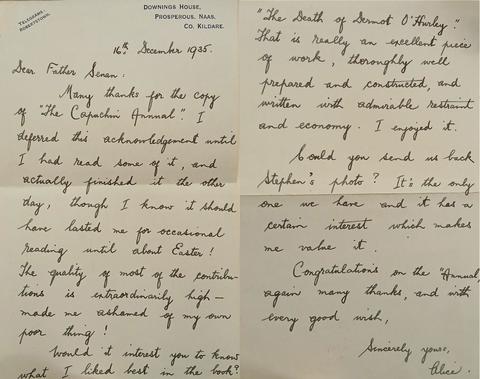 TELEGRAMS:
ROBERTSTOWN.
DOWNINGS HOUSE,
PROSPEROUS. NAAS.
CO. KILDARE.
16th December 1935.
Dear Father Senan:
Many thanks for the copy
of "The Capuchin Annual". I
deferred this acknowledgement until
I had read some of it, and
actually finished it the other
day, though I know it should
have lasted me for occasional
reading until about Easter!
The quality of most of the contribu-
tions is extraordinarily high —
made me ashamed of my own
poor thing!
Would it interest you to know
what I liked best in the book?
"The Death of Dermot O'Hurley".
That is really an excellent piece
of work, thoroughly well
prepared and constructed, and
written with admirable restraint
and economy. I enjoyed it.
Could you send us back
Stephen's photo? It's the only
one we have and it has a
certain interest which makes
me value it.
Congratulations on the "Annual,
again many thanks, and with
every good wish,
Sincerely yours,
Alice.